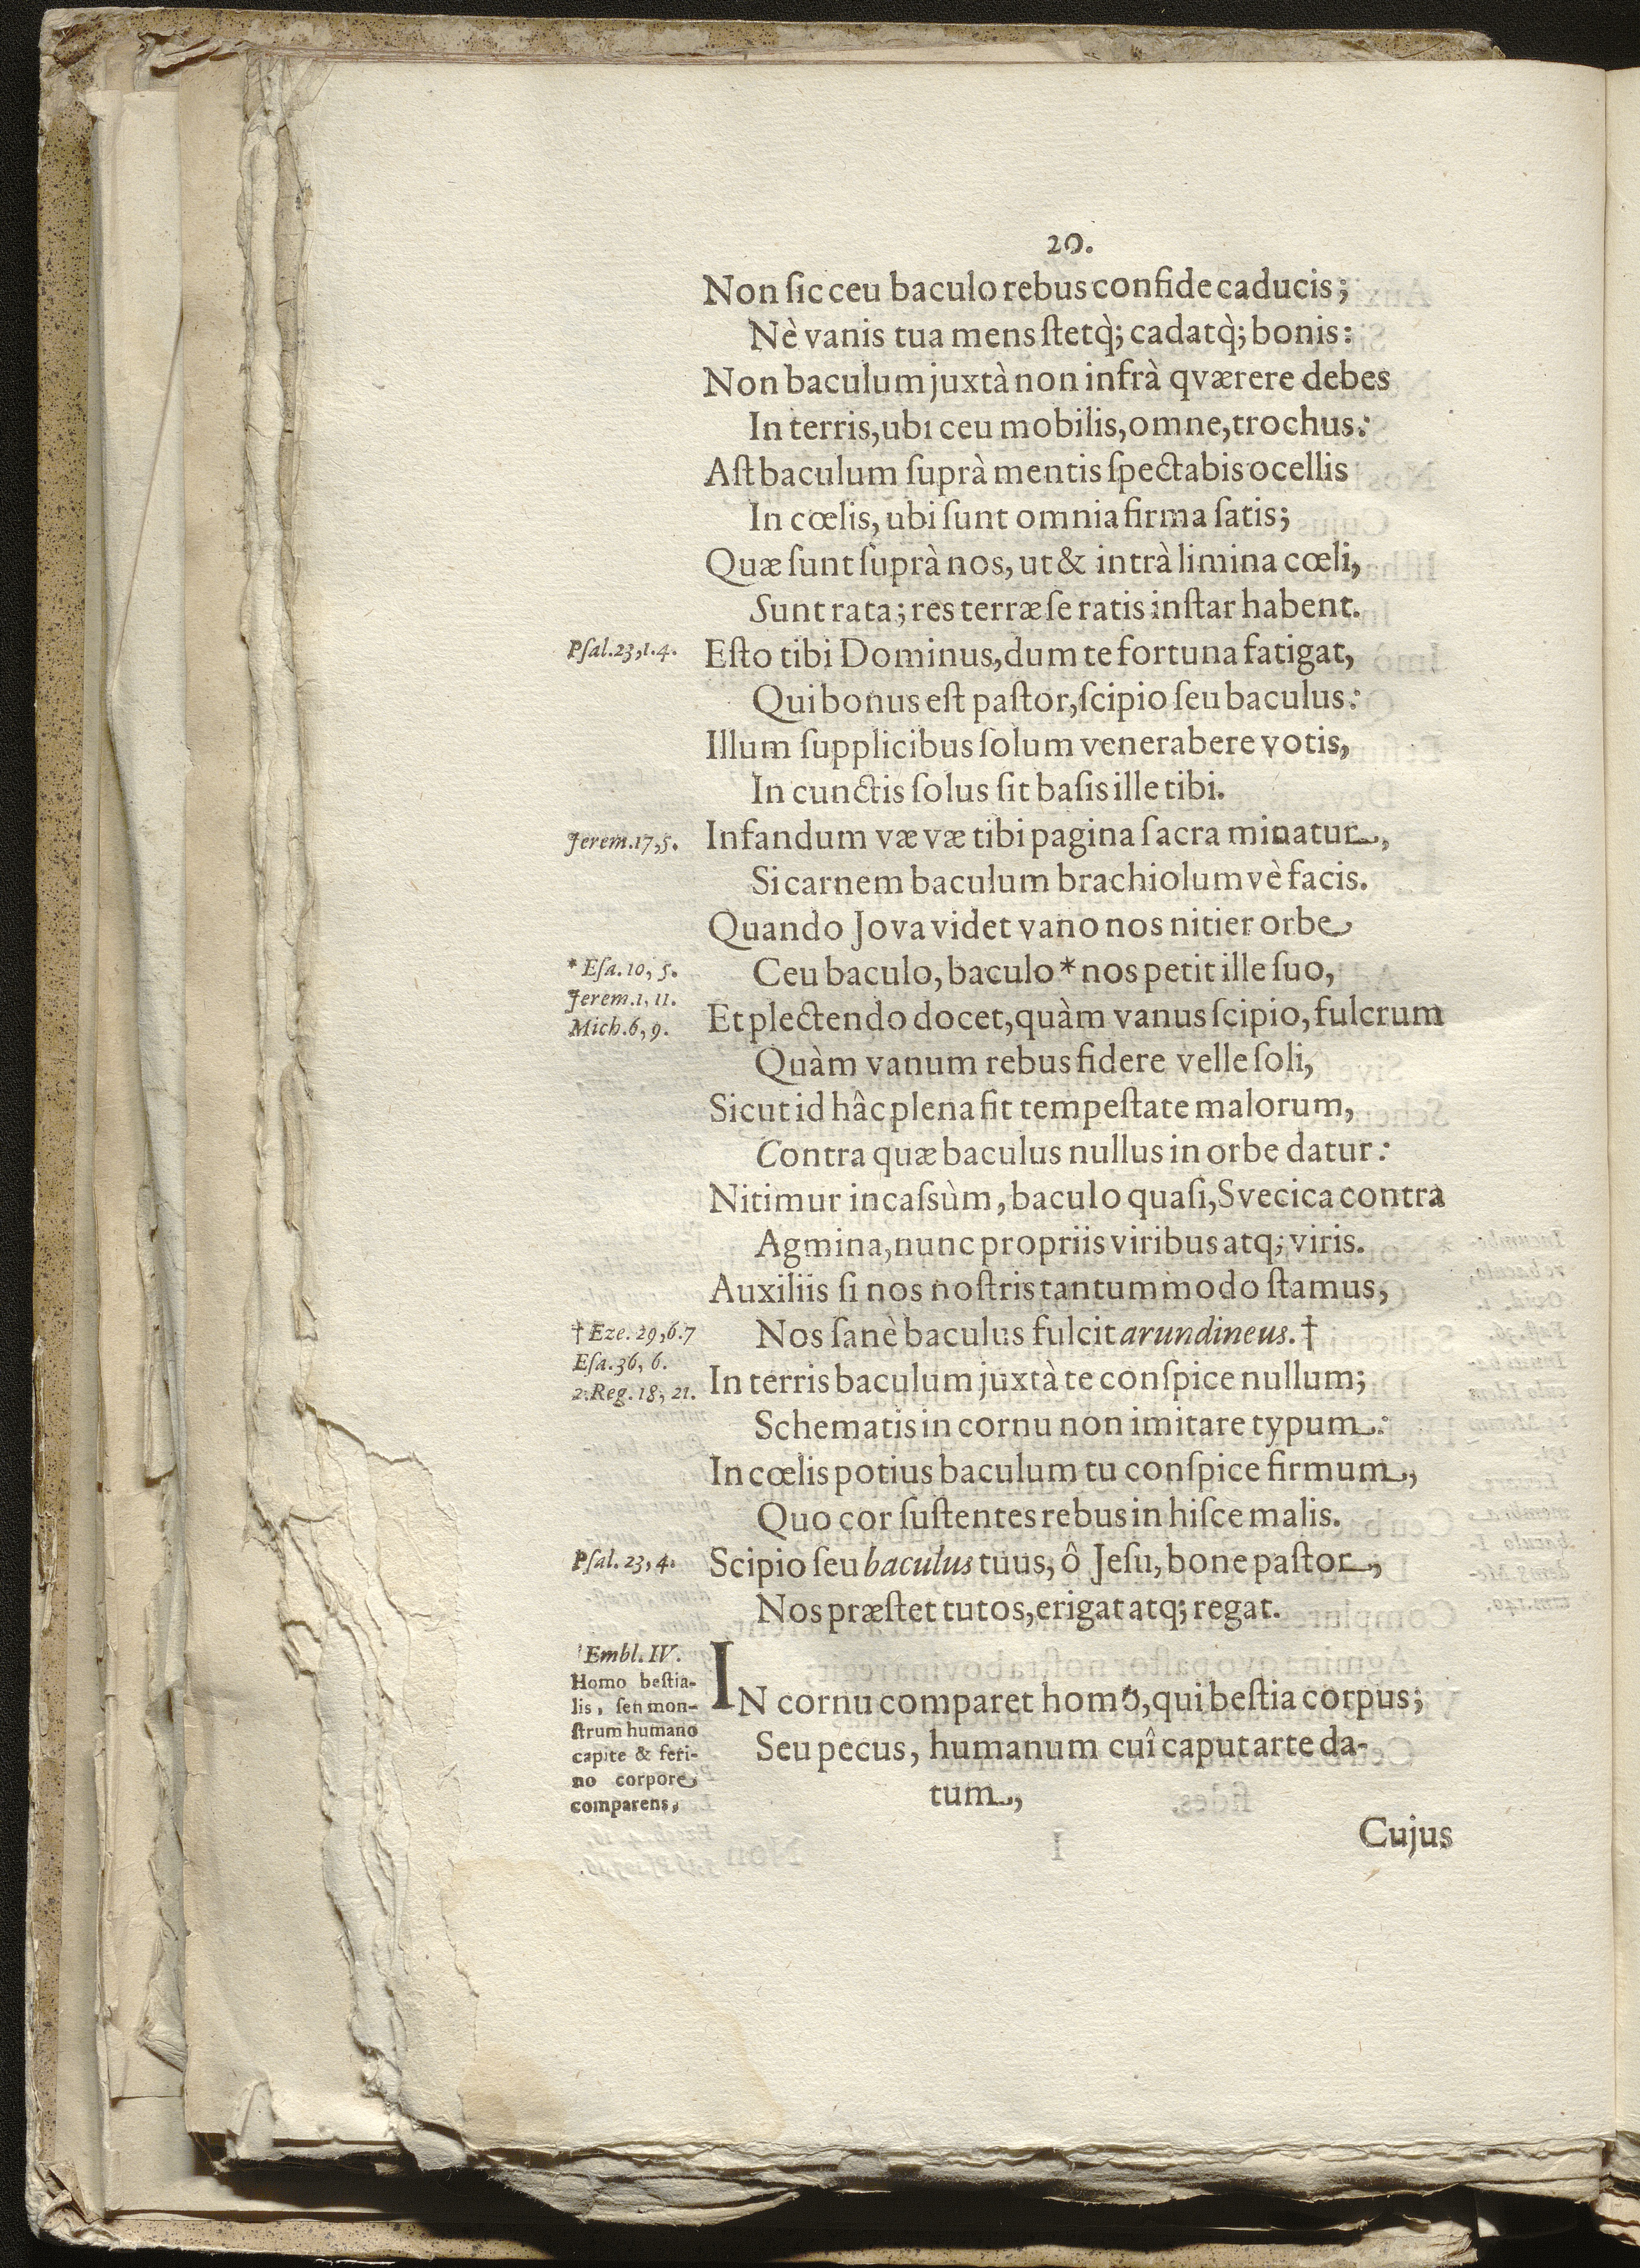 20.
Non ſic ceu baculo rebus confide caducis;
Nè vanis tua mens ſtetq̀; cadatq̀; bonis:
Non baculum juxtà non infrà qværere debes
In terris, ubi ceu mobilis, omne, trochus:
Aſt baculum ſuprà mentis ſpectabis ocellis
In cœlis, ubi ſunt omnia firma ſatis;
Quæ ſunt ſuprà nos, ut & intrà limina cœli,
Sunt rata; res terræ ſe ratis inſtar habent.
Pſal. 23, 1. 4.
Eſto tibi Dominus, dum te fortuna fatigat,
Qui bonus eſt paſtor, ſcipio ſeu baculus:
Illum ſupplicibus ſolum venerabere votis,
In cunctis ſolus ſit baſis ille tibi.
Jerem. 17, 5.
Infandum væ væ tibi pagina ſacra minatur,
Si carnem baculum brachiolumvè facis.
Quando Jova videt vano nos nitier orbe
* Eſa. 10, 5.
Jerem. 1, 11.
Mich. 6, 9.
Ceu baculo, baculo * nos petit ille ſuo,
Et plectendo docet, quàm vanus ſcipio, fulcrum
Quàm vanum rebus fidere velle ſoli,
Sicut id hâc plena fit tempeſtate malorum,
Contra quæ baculus nullus in orbe datur:
Nitimur incaſsùm, baculo quaſi, Svecica contra
Agmina, nunc propriis viribus atq; viris.
Auxiliis ſi nos noſtris tantummodo ſtamus,
† Eze. 29, 6. 7
Eſa. 36, 6.
2. Reg. 18, 21.
Nos ſanè baculus fulcit arundineus. †
In terris baculum juxtà te conſpice nullum;
Schematis in cornu non imitare typum:
In cœlis potius baculum tu conſpice firmum,
Quo cor ſuſtentes rebus in hiſce malis.
Pſal. 23, 4.
Scipio ſeu baculus tuus, ô Jeſu, bone paſtor,
Nos præſtet tutos, erigat atq; regat.
Embl. IV.
Homo beſtia-
lis, ſeu mon-
ſtrum humano
capite & feri-
no corpore
comparens,
IN cornu comparet homo, qui beſtia corpus;
Seu pecus, humanum cuî caput arte da-
tum,
Cujus